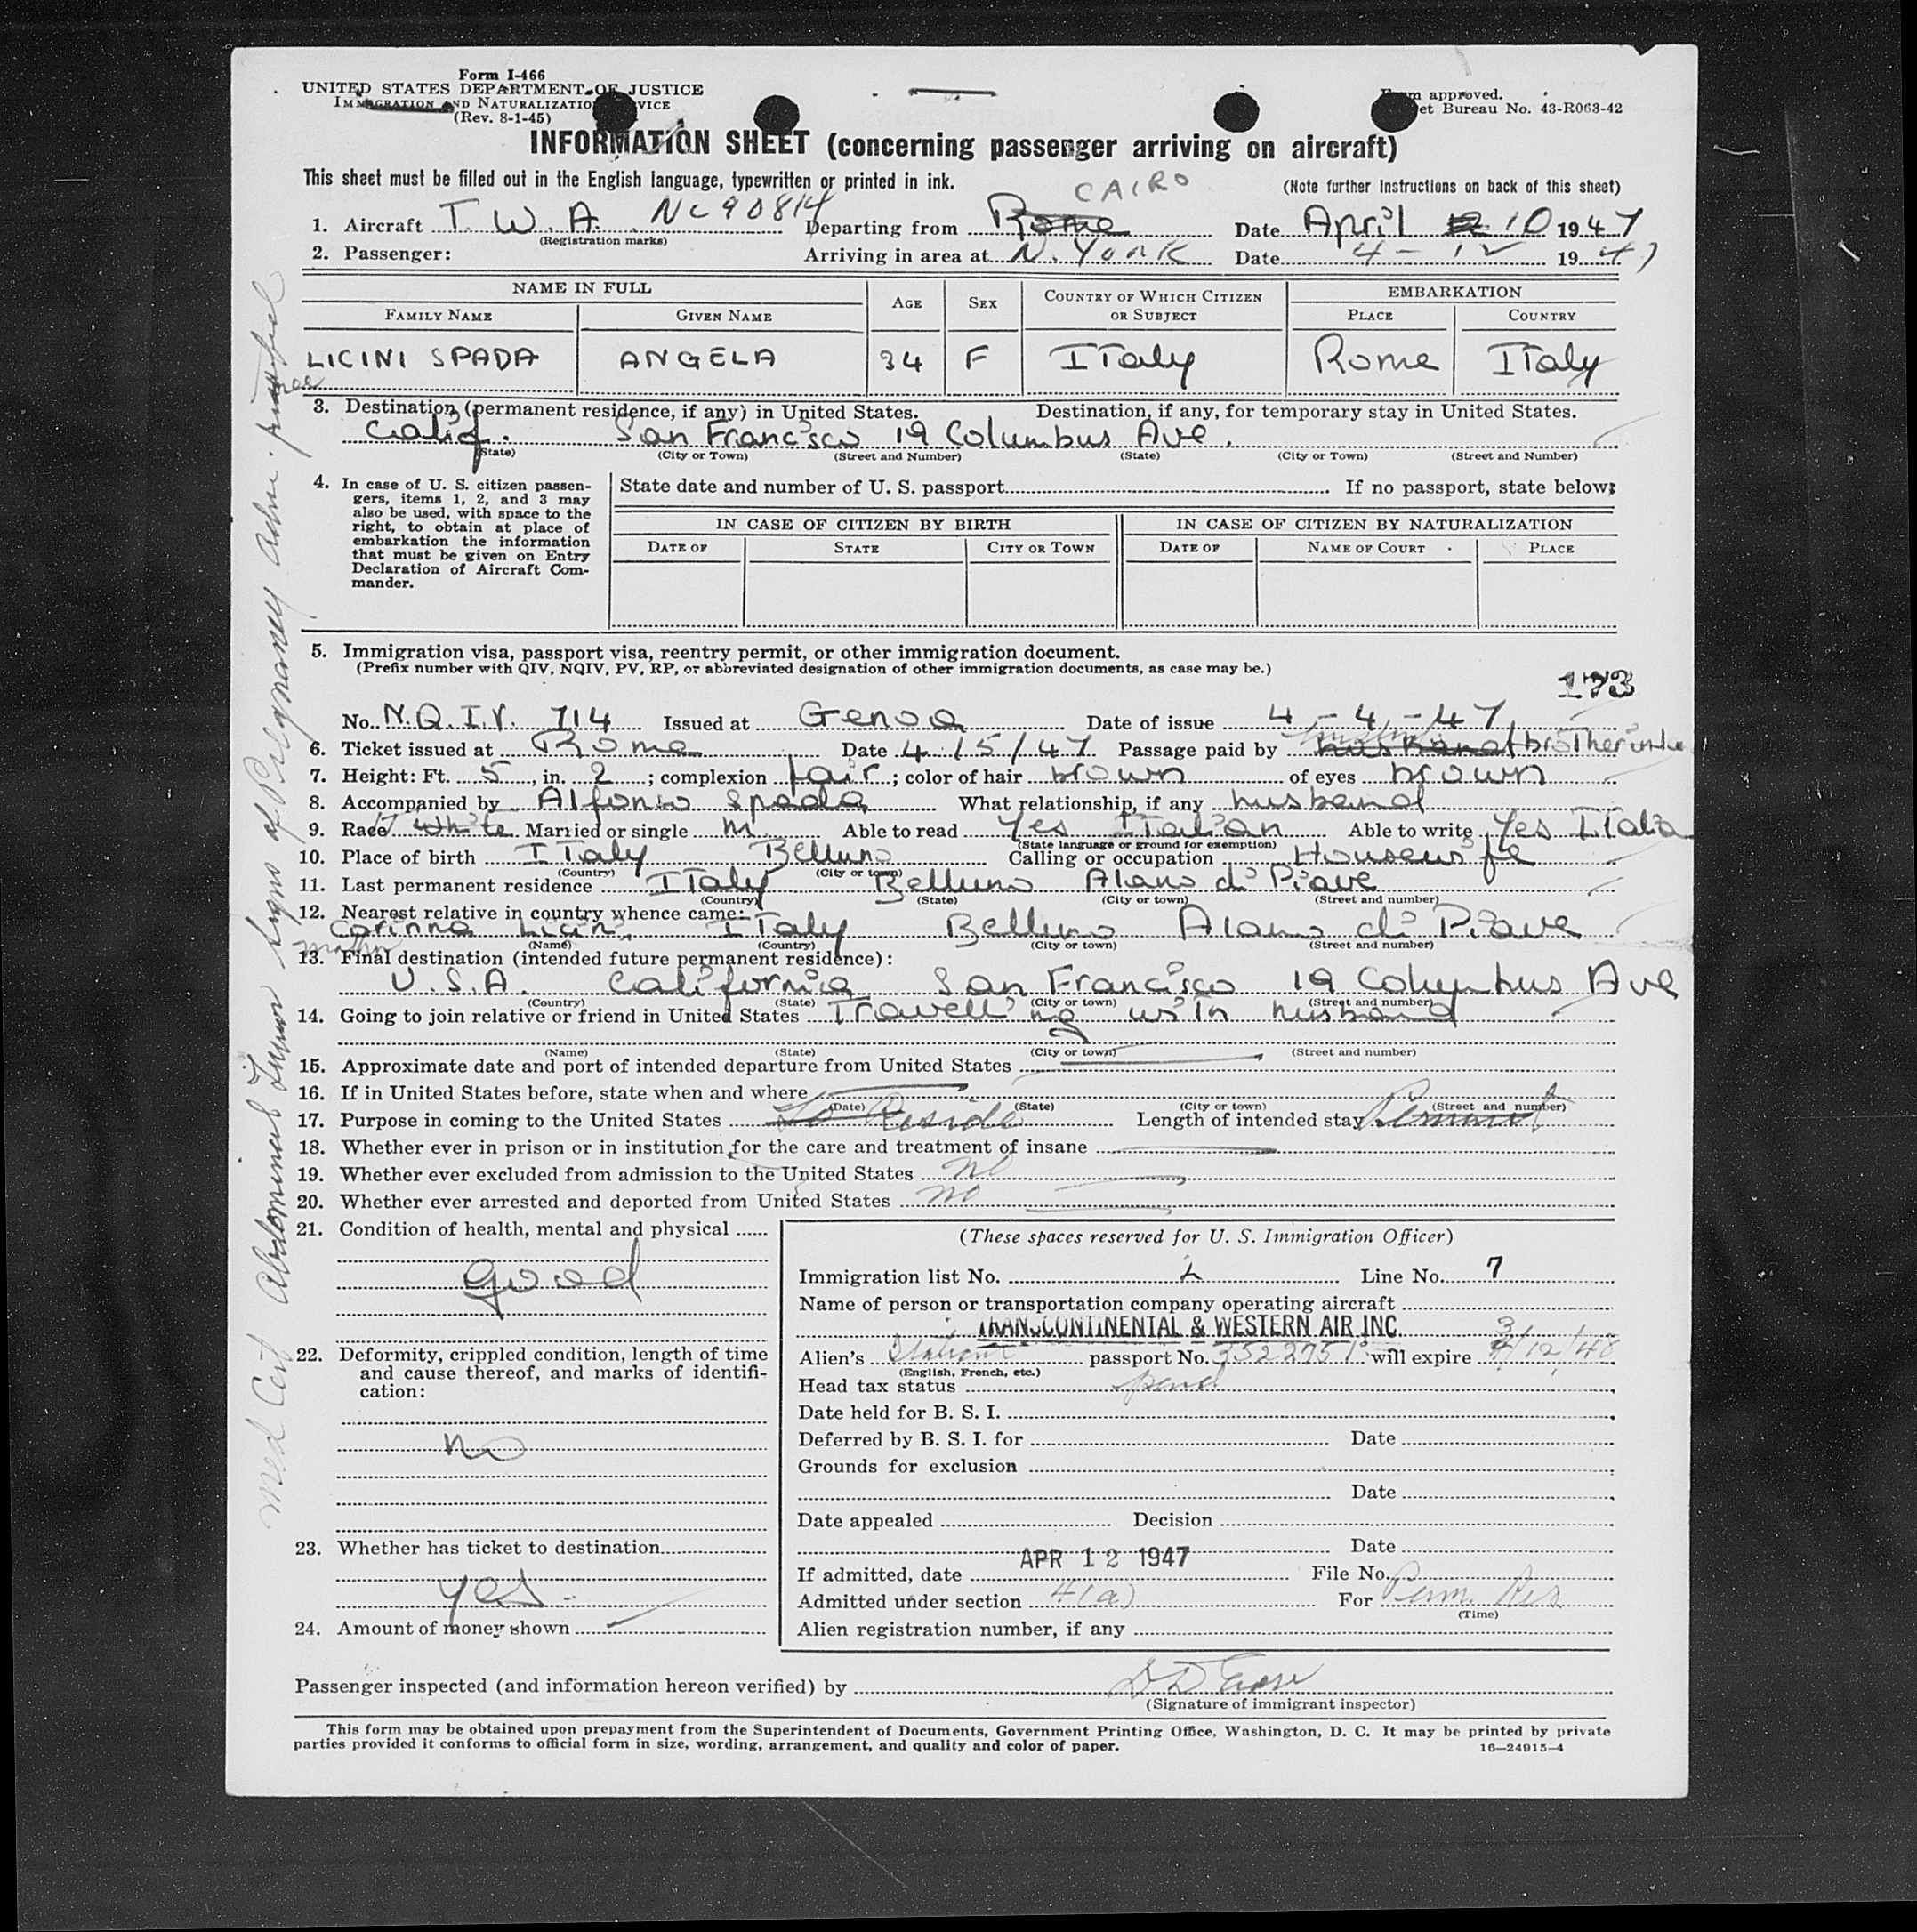 Form I-466
UNITED STATES DEPARTMENT OF JUSTICE
IMMIGRATION AND NATURALIZATION SERVICE
(Rev. 8-1-45)
Form approved.
et Bureau No. 43-R063-42
INFORMATION SHEET (concerning passenger arriving on aircraft)
This sheet must be filled out in the English language, typewritten or printed in ink.
(Note further instructions on back of this sheet)
CAIRO
1. Aircraft T. W. A. NC90814 Departing from Rome Date April 10 1947
(Registration marks)
2. Passenger: Arriving in area at N. YORK Date 4-12 1947
NAME IN FULL AGE SEX COUNTRY OF WHICH CITIZEN OR SUBJECT EMBARKATION
FAMILY NAME GIVEN NAME PLACE COUNTRY
LICINI SPADA ANGELA 34 F ITaly Rome ITaly
nee
3. Destination (permanent residence, if any) in United States. Destination, if any, for temporary stay in United States.
Calif. San Francisco 19 Columbus Ave.
(State) (City or Town) (Street and Number) (State) (City or Town) (Street and Number)
4. In case of U. S. citizen passengers, items 1, 2, and 3 may also be used, with space to the right, to obtain at place of embarkation the information that must be given on Entry Declaration of Aircraft Commander.
State date and number of U. S. passport If no passport, state below:
IN CASE OF CITIZEN BY BIRTH IN CASE OF CITIZEN BY NATURALIZATION
DATE OF STATE CITY OR TOWN DATE OF NAME OF COURT PLACE
5. Immigration visa, passport visa, reentry permit, or other immigration document.
(Prefix number with QIV, NQIV, PV, RP, or abbreviated designation of other immigration documents, as case may be.)
173
No. N.Q.I.V. 714 Issued at Genoa Date of issue 4-4-47
6. Ticket issued at Rome Date 4/5/47 Passage paid by husband brother
7. Height: Ft. 5, in. 2; complexion fair; color of hair brown of eyes brown
8. Accompanied by Alfonso Spada What relationship, if any husband
9. Race White Married or single M. Able to read Yes ITalian Able to write Yes ITalia
(State language or ground for exemption)
10. Place of birth ITaly Belluno Calling or occupation Housewife
(Country) (City or town)
11. Last permanent residence ITaly Belluno Alano di Piave
(Country) (State) (City or town) (Street and number)
12. Nearest relative in country whence came:
Corinna Licini ITaly Belluno Alano di Piave
mother (Name) (Country) (City or town) (Street and number)
13. Final destination (intended future permanent residence):
U.S.A. California San Francisco 19 Columbus Ave
(Country) (State) (City or town) (Street and number)
14. Going to join relative or friend in United States Travelling with husband
(Name) (State) (City or town) (Street and number)
15. Approximate date and port of intended departure from United States
16. If in United States before, state when and where
(Date) (State) (City or town) (Street and number)
17. Purpose in coming to the United States To Reside Length of intended stay Permanent
18. Whether ever in prison or in institution for the care and treatment of insane
19. Whether ever excluded from admission to the United States No
20. Whether ever arrested and deported from United States no
21. Condition of health, mental and physical
good
22. Deformity, crippled condition, length of time and cause thereof, and marks of identification:
no
23. Whether has ticket to destination
yes
24. Amount of money shown
(These spaces reserved for U. S. Immigration Officer)
Immigration list No. 2 Line No. 7
Name of person or transportation company operating aircraft
TRANSCONTINENTAL & WESTERN AIR INC.
Alien's Italian passport No. will expire 3/12/48
(English, French, etc.)
Head tax status pend
Date held for B. S. I.
Deferred by B. S. I. for Date
Grounds for exclusion
Date
Date appealed Decision
Date
If admitted, date APR 12 1947 File No.
Admitted under section 4(a) For Perm. Res
(Time)
Alien registration number, if any
Passenger inspected (and information hereon verified) by
(Signature of immigrant inspector)
This form may be obtained upon prepayment from the Superintendent of Documents, Government Printing Office, Washington, D. C. It may be printed by private
parties provided it conforms to official form in size, wording, arrangement, and quality and color of paper. 16—24915-4
Med Cert Abdominal Tumor signs of Pregnancy